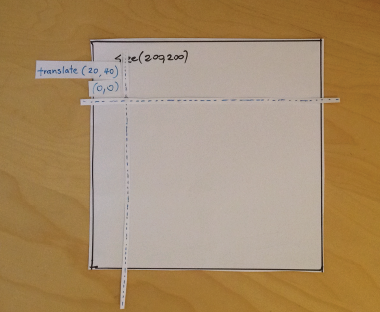 size(200,200)
translate (20,40)
(0,0)